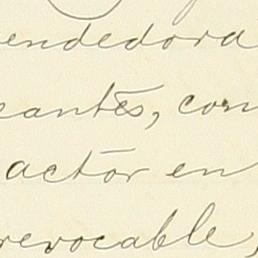 endedora
eantes, con
actor en
revocable,